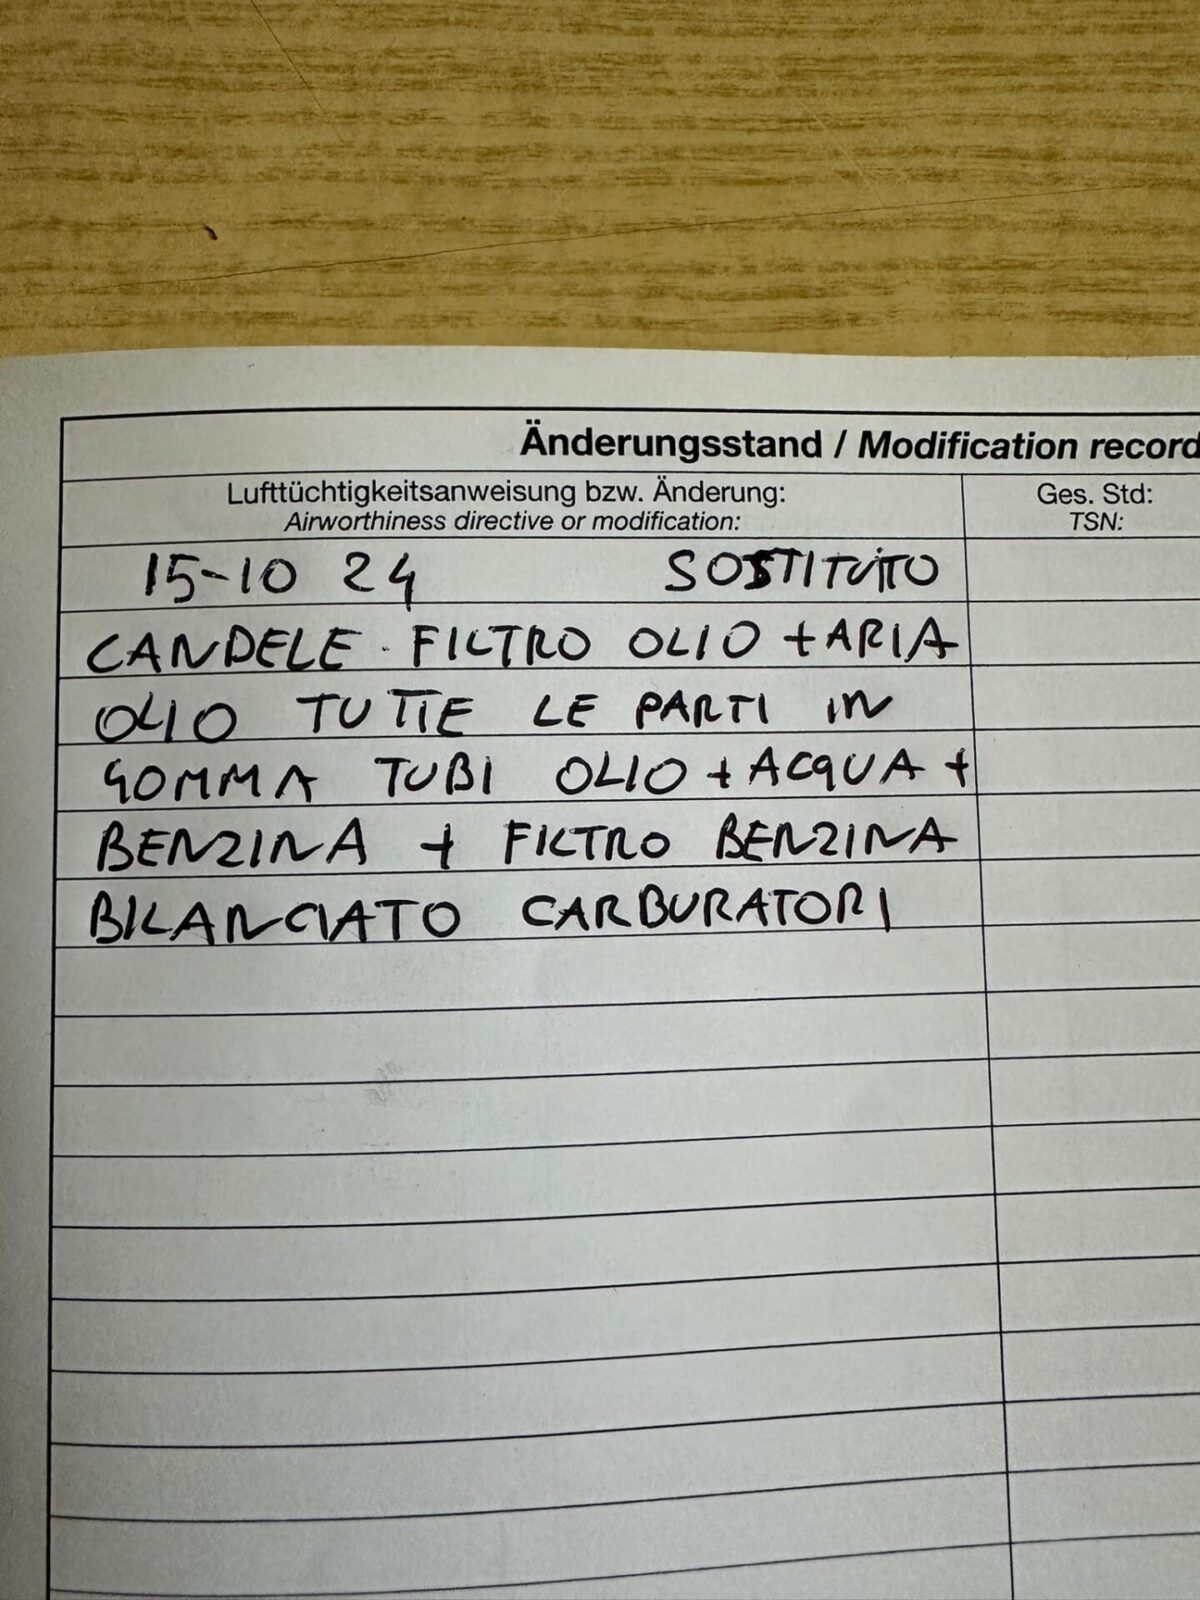 Änderungsstand / Modification record
Lufttüchtigkeitsanweisung bzw. Änderung:
Airworthiness directive or modification:
Ges. Std:
TSN:
15-10 24 SOSTITUITO
CANDELE. FILTRO OLIO + ARIA
OLIO TUTTE LE PARTI IN
GOMMA TUBI OLIO + ACQUA +
BENZINA + FILTRO BENZINA
BILANCIATO CARBURATORI